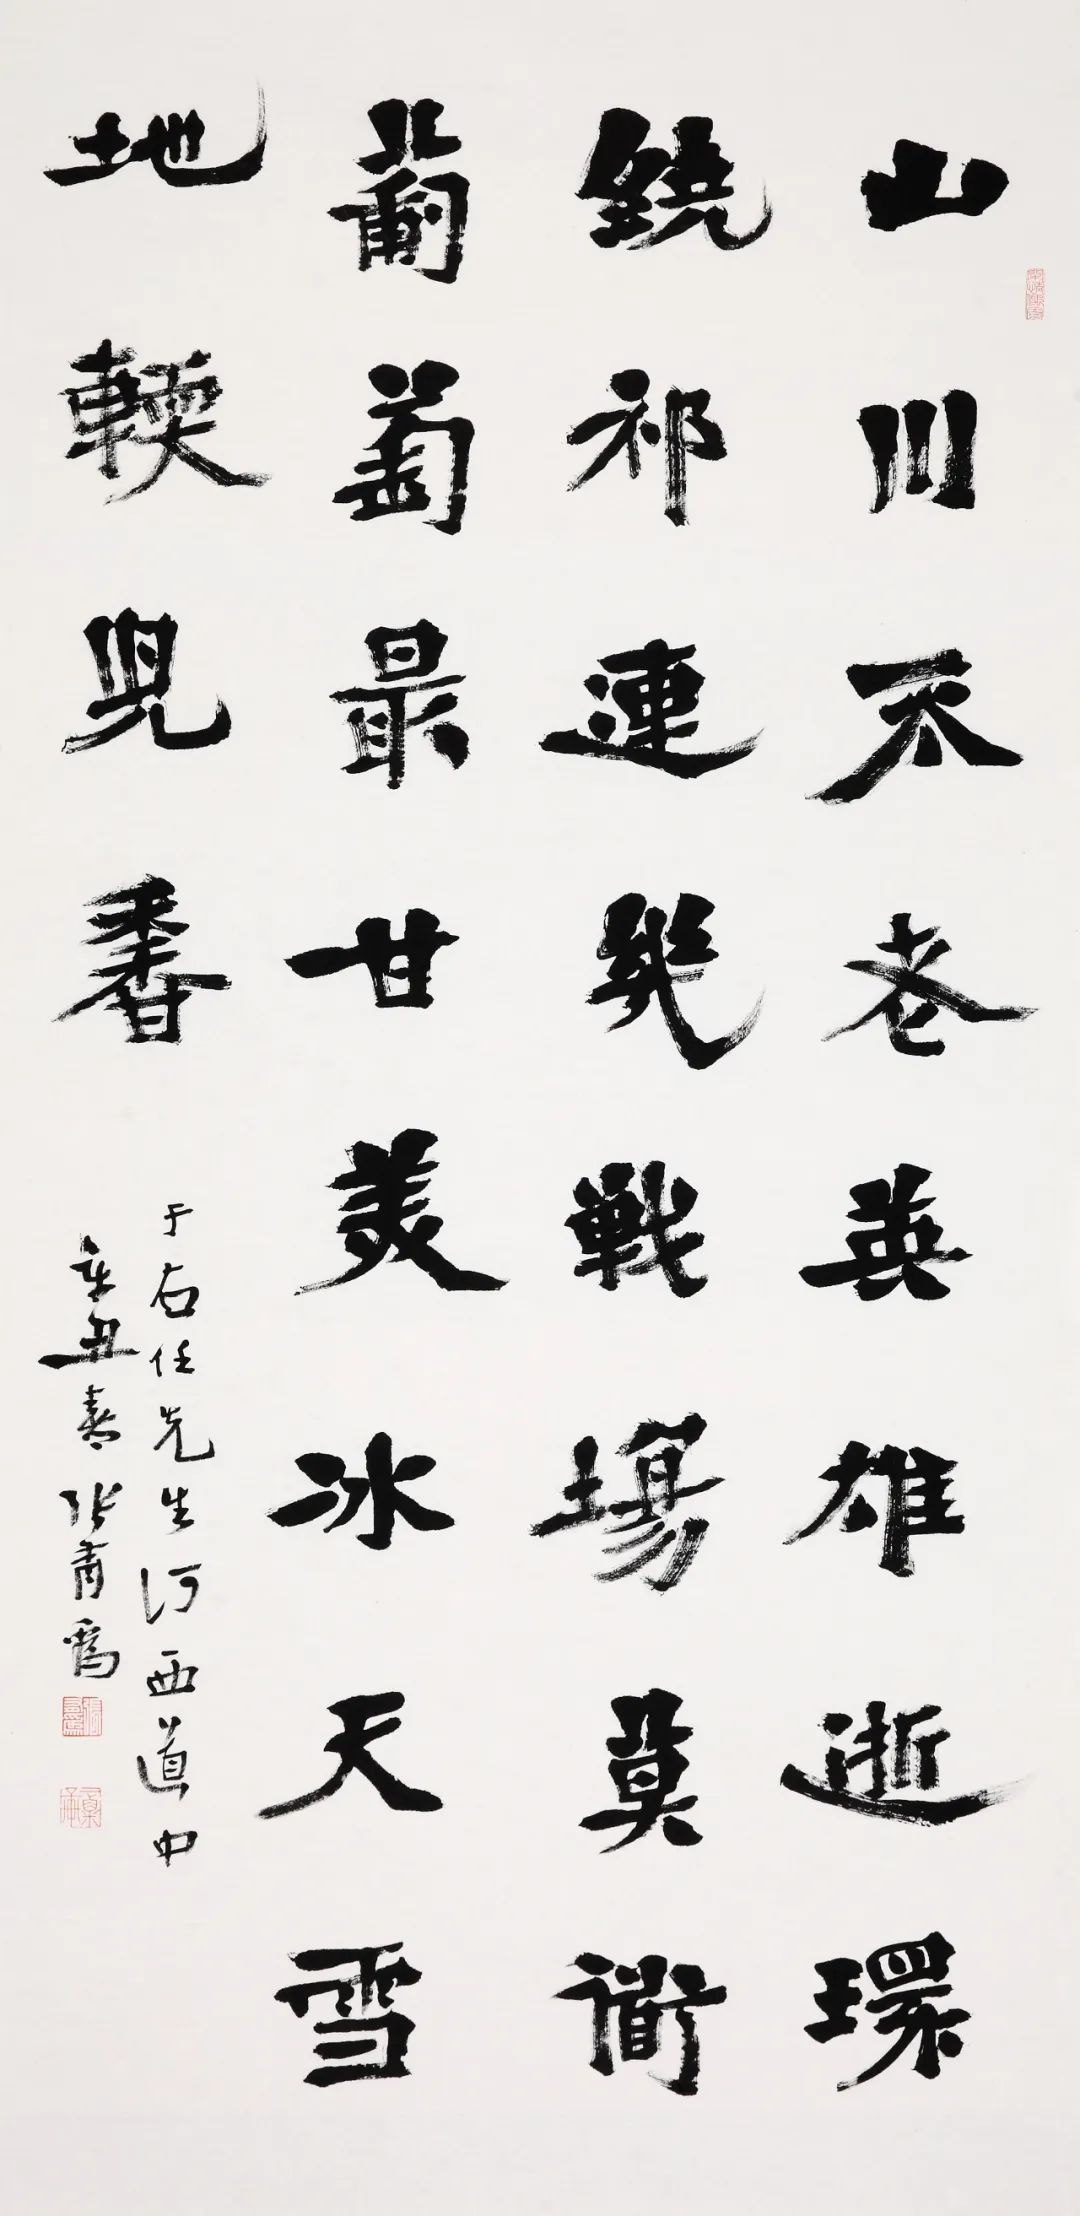 山川不老英雄逝環
繞祁連幾戰場莫衟
葡萄最甘美冰天雪
地輭兒香
于右任先生河西道中
辛丑春張